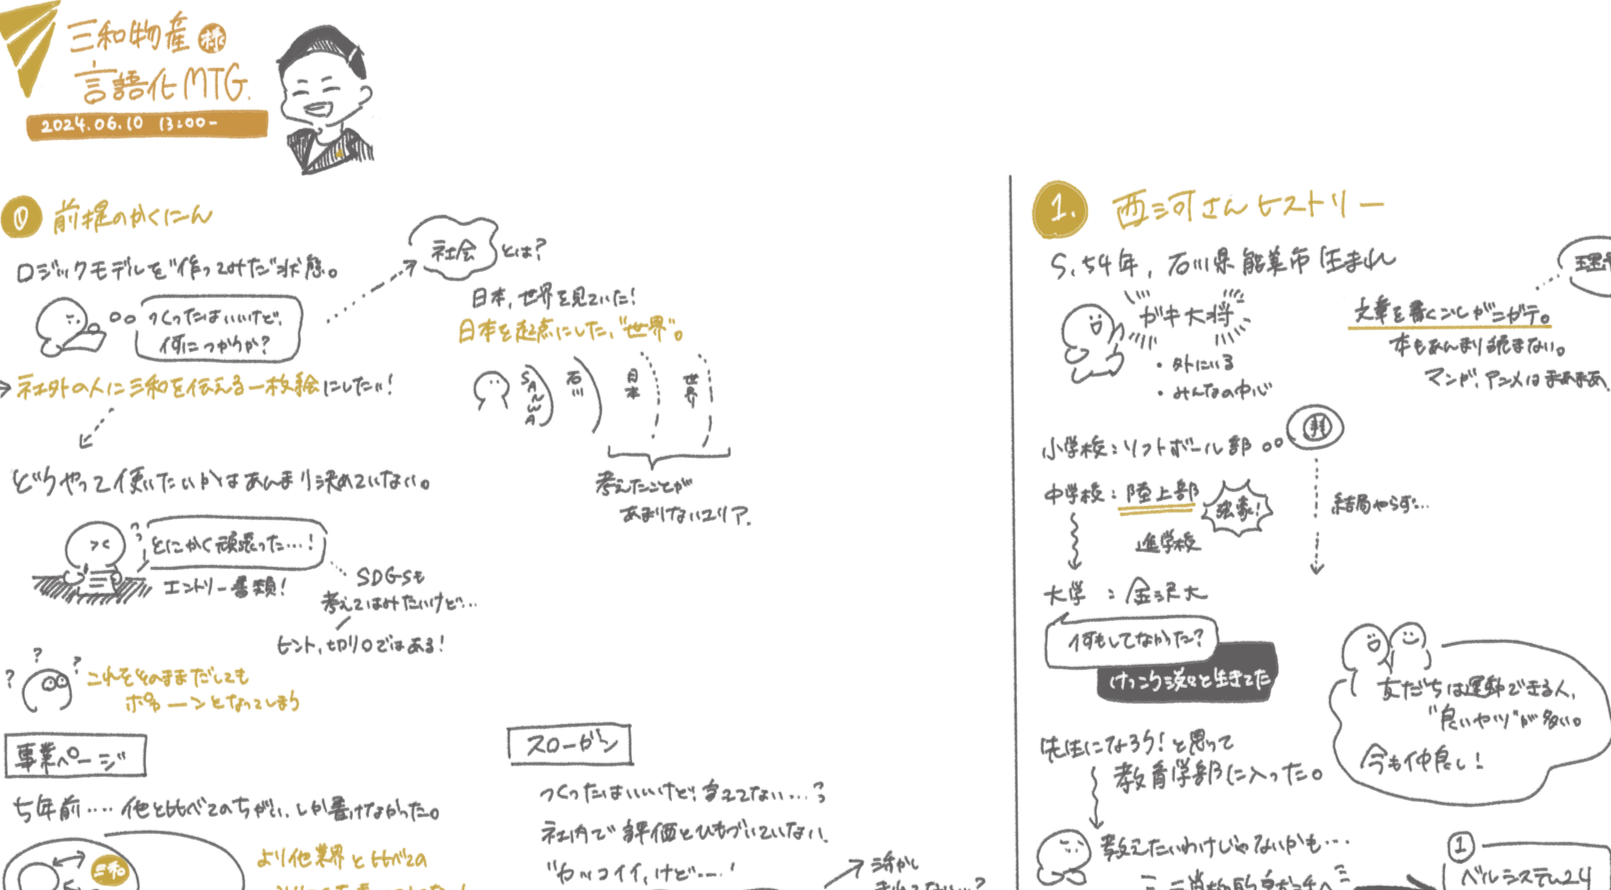 三和物産様
言語化MTG.
2024.06.10 13:00-
0 前提のかくにん
ロジックモデルを"作ってみた"状態。
つくったはいいけど、
何につかうか?
社会とは?
日本、世界を見ていた!
日本を起点にした、"世界"。
SANWA
石川
日本
世界
考えたことが
あまりないエリア.
→社外の人に三和を伝える一枚絵にしたい!
どうやって使いたいかはあんまり決めていない。
とにかく頑張った…!
エントリー書類!
SDGsも
考えてはみたいけど…
ヒント、切り口ではある!
? ? ?
これをそのままだしても
ポカーンとなってしまう
事業ページ
5年前…. 他と比べてのちがい、しか書けなかった。
三和
より他業界と比べての
スローガン
つくったはいいけど、言えてない…?
社内で評価とひもづいていない.
"カッコイイ、けど…!
活かし
きれてない…?
1. 西河さんヒストリー
S.54年、石川県能美市生まれ
ガキ大将
・外にいる
・みんなの中心
文章を書くことがニガテ。
本もあんまり読まない。
マンガ、アニメはまあまあ.
小学校:ソフトボール部
結局やらず…
中学校:陸上部
独象!
進学校
大学:金沢大
何もしてなかった?
けっこう淡々と生きてた
友だちは運動できる人、
"良いヤツ"が多い。
今も仲良し!
先生になろう!と思って
教育学部に入った。
教えたいわけじゃないかも…
1
ベルシステム24